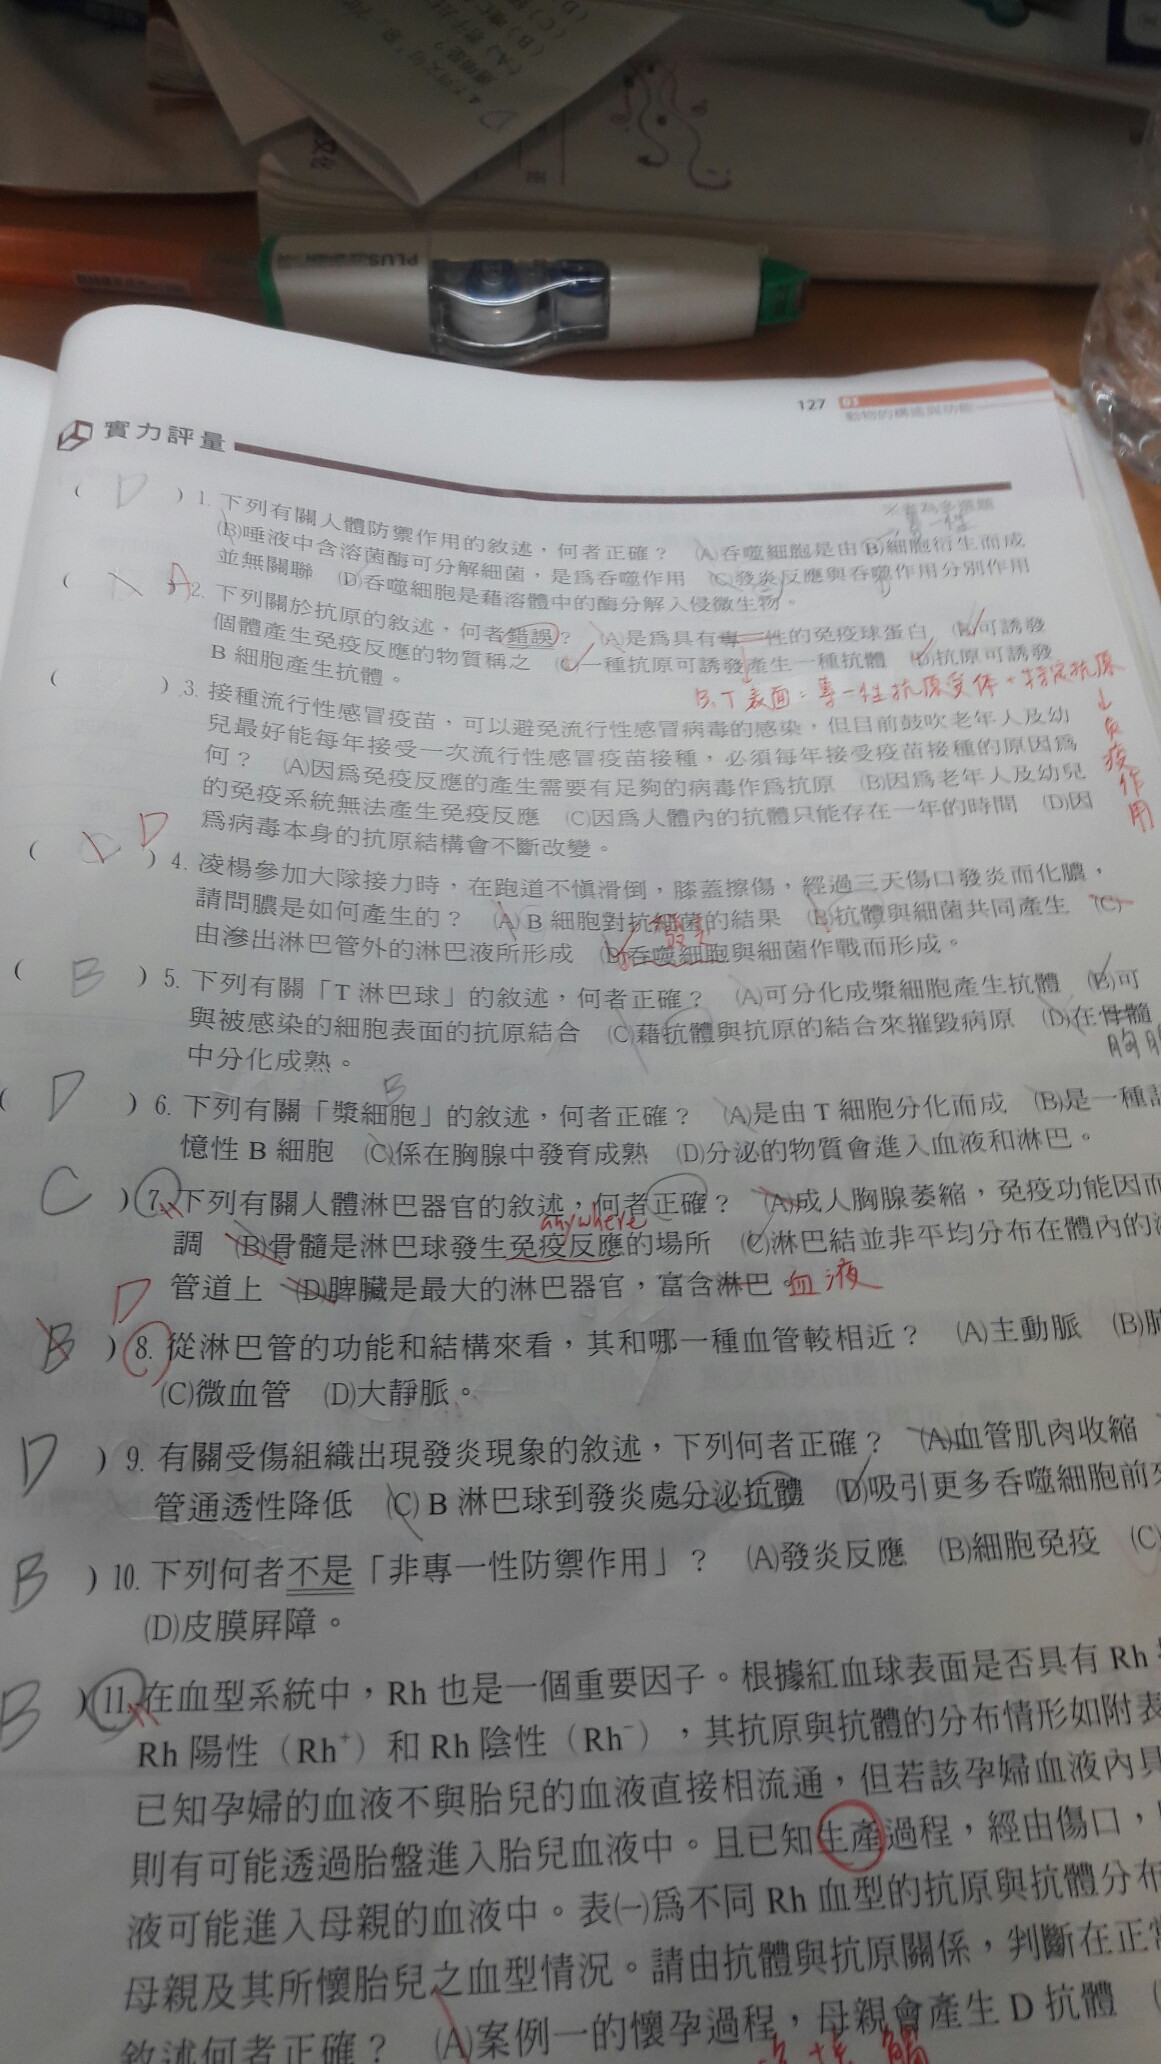 PLUS
127 03
動物的構造與功能
實力評量
( D ) 1. 下列有關人體防禦作用的敘述，何者正確？ (A)吞噬細胞是由(B)細胞衍生而成
(B)唾液中含溶菌酶可分解細菌，是為吞噬作用 (C)發炎反應與吞噬作用分別作用
並無關聯 (D)吞噬細胞是藉溶體中的酶分解入侵微生物。
A 2. 下列關於抗原的敘述，何者錯誤？ (A)是為具有專一性的免疫球蛋白 (B)可誘發
個體產生免疫反應的物質稱之 (C)一種抗原可誘發產生一種抗體 (D)抗原可誘發
B 細胞產生抗體。
B、T表面：專一性抗原受體+特定抗原
↓免疫作用
( ) 3. 接種流行性感冒疫苗，可以避免流行性感冒病毒的感染，但目前鼓吹老年人及幼
兒最好能每年接受一次流行性感冒疫苗接種，必須每年接受疫苗接種的原因為
何？ (A)因為免疫反應的產生需要有足夠的病毒作為抗原 (B)因為老年人及幼兒
的免疫系統無法產生免疫反應 (C)因為人體內的抗體只能存在一年的時間 (D)因
為病毒本身的抗原結構會不斷改變。
D
( ) 4. 凌楊參加大隊接力時，在跑道不慎滑倒，膝蓋擦傷，經過三天傷口發炎而化膿，
請問膿是如何產生的？ (A) B 細胞對抗細菌的結果 (B)抗體與細菌共同產生 (C)
由滲出淋巴管外的淋巴液所形成 (D)吞噬細胞與細菌作戰而形成。
( B ) 5. 下列有關「T 淋巴球」的敘述，何者正確？ (A)可分化成漿細胞產生抗體 (B)可
與被感染的細胞表面的抗原結合 (C)藉抗體與抗原的結合來摧毀病原 (D)在骨髓
中分化成熟。
胸腺
B
( D ) 6. 下列有關「漿細胞」的敘述，何者正確？ (A)是由 T 細胞分化而成 (B)是一種記
憶性 B 細胞 (C)係在胸腺中發育成熟 (D)分泌的物質會進入血液和淋巴。
C ) 7. 下列有關人體淋巴器官的敘述，何者正確？ (A)成人胸腺萎縮，免疫功能因而
anywhere
調 (B)骨髓是淋巴球發生免疫反應的場所 (C)淋巴結並非平均分布在體內的
管道上 (D)脾臟是最大的淋巴器官，富含淋巴。血液
D
B ) 8. 從淋巴管的功能和結構來看，其和哪一種血管較相近？ (A)主動脈 (B)
(C)微血管 (D)大靜脈。
D ) 9. 有關受傷組織出現發炎現象的敘述，下列何者正確？ (A)血管肌肉收縮
管通透性降低 (C) B 淋巴球到發炎處分泌抗體 (D)吸引更多吞噬細胞前
B ) 10. 下列何者不是「非專一性防禦作用」？ (A)發炎反應 (B)細胞免疫 (C)
(D)皮膜屏障。
B ) 11. 在血型系統中，Rh 也是一個重要因子。根據紅血球表面是否具有 Rh
Rh 陽性（Rh⁺）和 Rh 陰性（Rh⁻），其抗原與抗體的分布情形如附表
已知孕婦的血液不與胎兒的血液直接相流通，但若該孕婦血液內具
則有可能透過胎盤進入胎兒血液中。且已知生產過程，經由傷口，
液可能進入母親的血液中。表(一)為不同 Rh 血型的抗原與抗體分布
母親及其所懷胎兒之血型情況。請由抗體與抗原關係，判斷在正常
敘述何者正確？ (A)案例一的懷孕過程，母親會產生 D 抗體